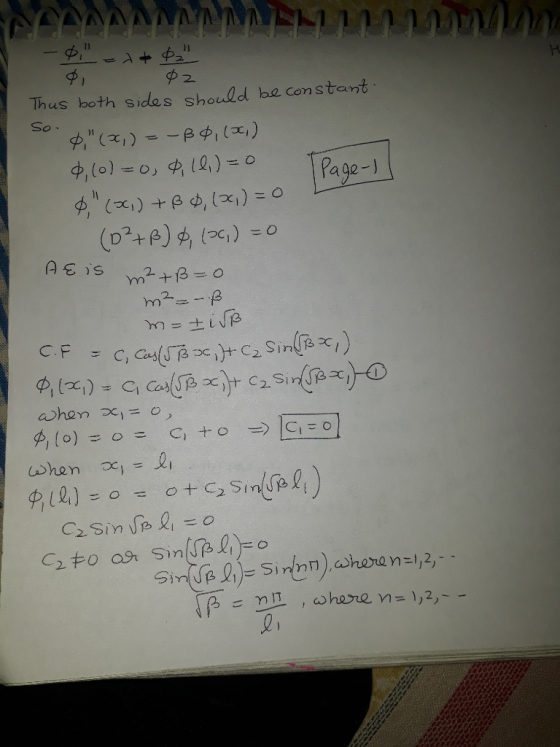 -ϕ₁''/ϕ₁ = λ + ϕ₂''/ϕ2
Thus both sides should be constant.
So.
ϕ₁''(x₁) = -β ϕ₁(x₁)
ϕ₁(0) = 0, ϕ₁(l₁) = 0
Page-1
ϕ₁''(x₁) + β ϕ₁(x₁) = 0
(D²+β) ϕ₁(x₁) = 0
AE is m² + β = 0
m² = -β
m = ± i√β
C.F = C₁ Cos(√β x₁) + C₂ Sin(√β x₁)
ϕ₁(x₁) = C₁ Cos(√β x₁) + C₂ Sin(√β x₁) -①
when x₁ = 0,
ϕ₁(0) = 0 = C₁ + 0 ⇒ C₁ = 0
when x₁ = l₁
ϕ₁(l₁) = 0 = 0 + C₂ Sin(√β l₁)
C₂ Sin √β l₁ = 0
C₂ ≠ 0 or Sin(√β l₁) = 0
Sin(√β l₁) = Sin(nπ), where n=1,2,--
√β = nπ/l₁, where n = 1,2,--
H